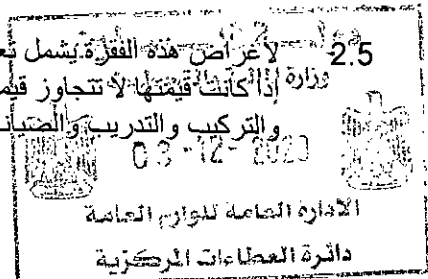 2.5 لأغراض هذه الفقرة يشمل
وزارة
إذا كانت قيمتها لا تتجاوز
والتركيب والتدريب والصيان
الادارة العامة للوازم العامة
دائرة العطاءات المركزية